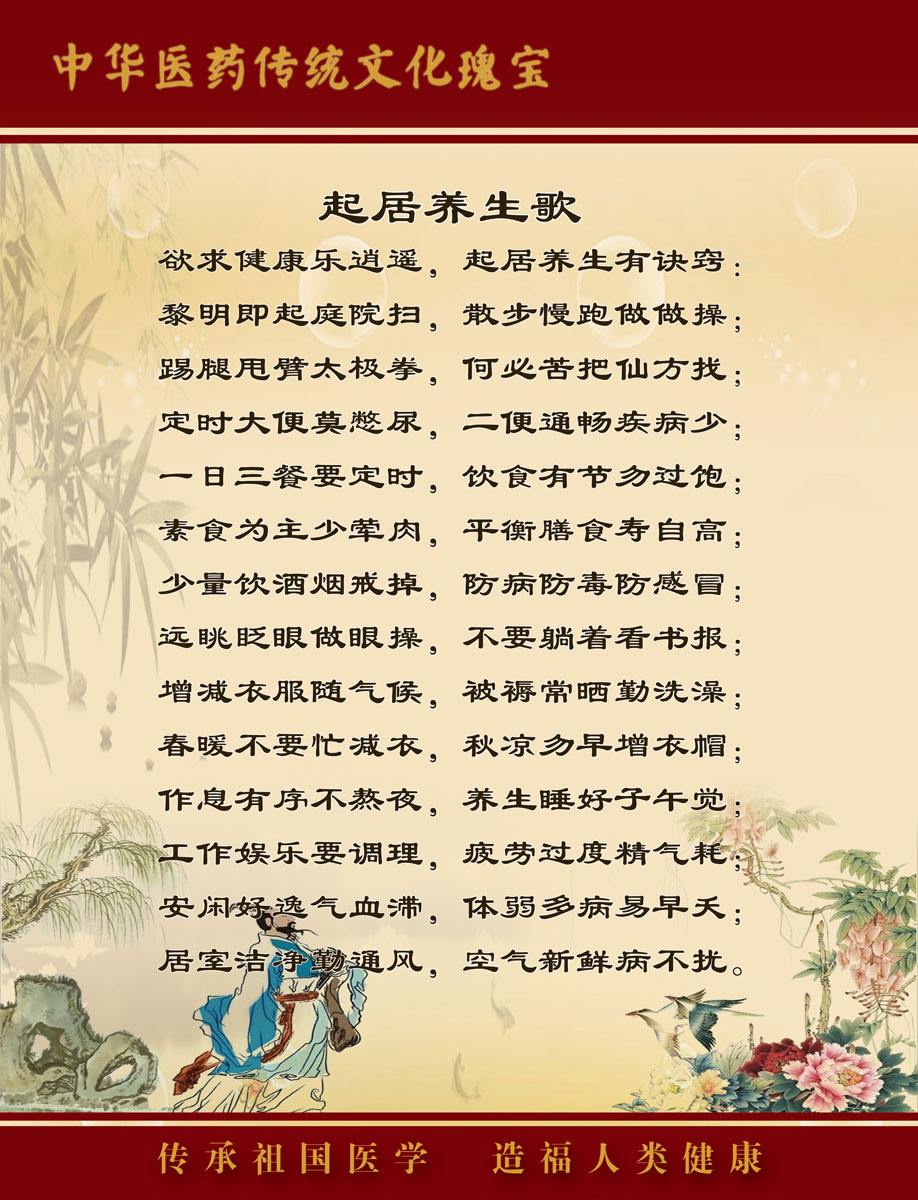 中华医药传统文化瑰宝
起居养生歌
欲求健康乐逍遥，起居养生有诀窍：
黎明即起庭院扫，散步慢跑做做操；
踢腿甩臂太极拳，何必苦把仙方找；
定时大便莫憋尿，二便通畅疾病少；
一日三餐要定时，饮食有节勿过饱；
素食为主少荤肉，平衡膳食寿自高；
少量饮酒烟戒掉，防病防毒防感冒；
远眺眨眼做眼操，不要躺着看书报；
增减衣服随气候，被褥常晒勤洗澡；
春暖不要忙减衣，秋凉勿早增衣帽；
作息有序不熬夜，养生睡好子午觉；
工作娱乐要调理，疲劳过度精气耗；
安闲好逸气血滞，体弱多病易早夭；
居室洁净勤通风，空气新鲜病不扰。
传承祖国医学 造福人类健康